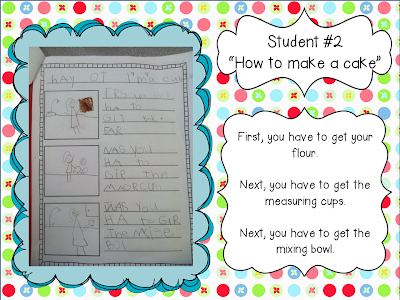 Student #2
"How to make a cake"
First, you have to get your
flour.
Next, you have to get the
measuring cups.
Next, you have to get the
mixing bowl.
hAy OT
HA to
GIT
NAS you
HA to
GIR the
WAS you
HA to GIR
The mise
BOL